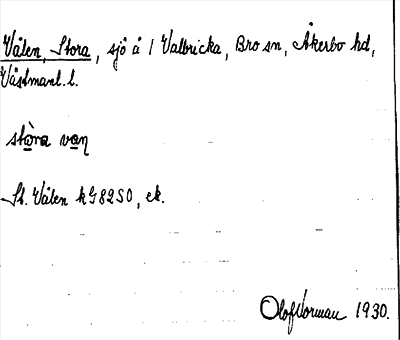 Vålen, Stora, sjö å 1 Valbricka, Bro sn, Åkerbo hd,
Västmanl. l.
stòra van
St. Vålen kG82SO, ek.
Olof Norman 1930.